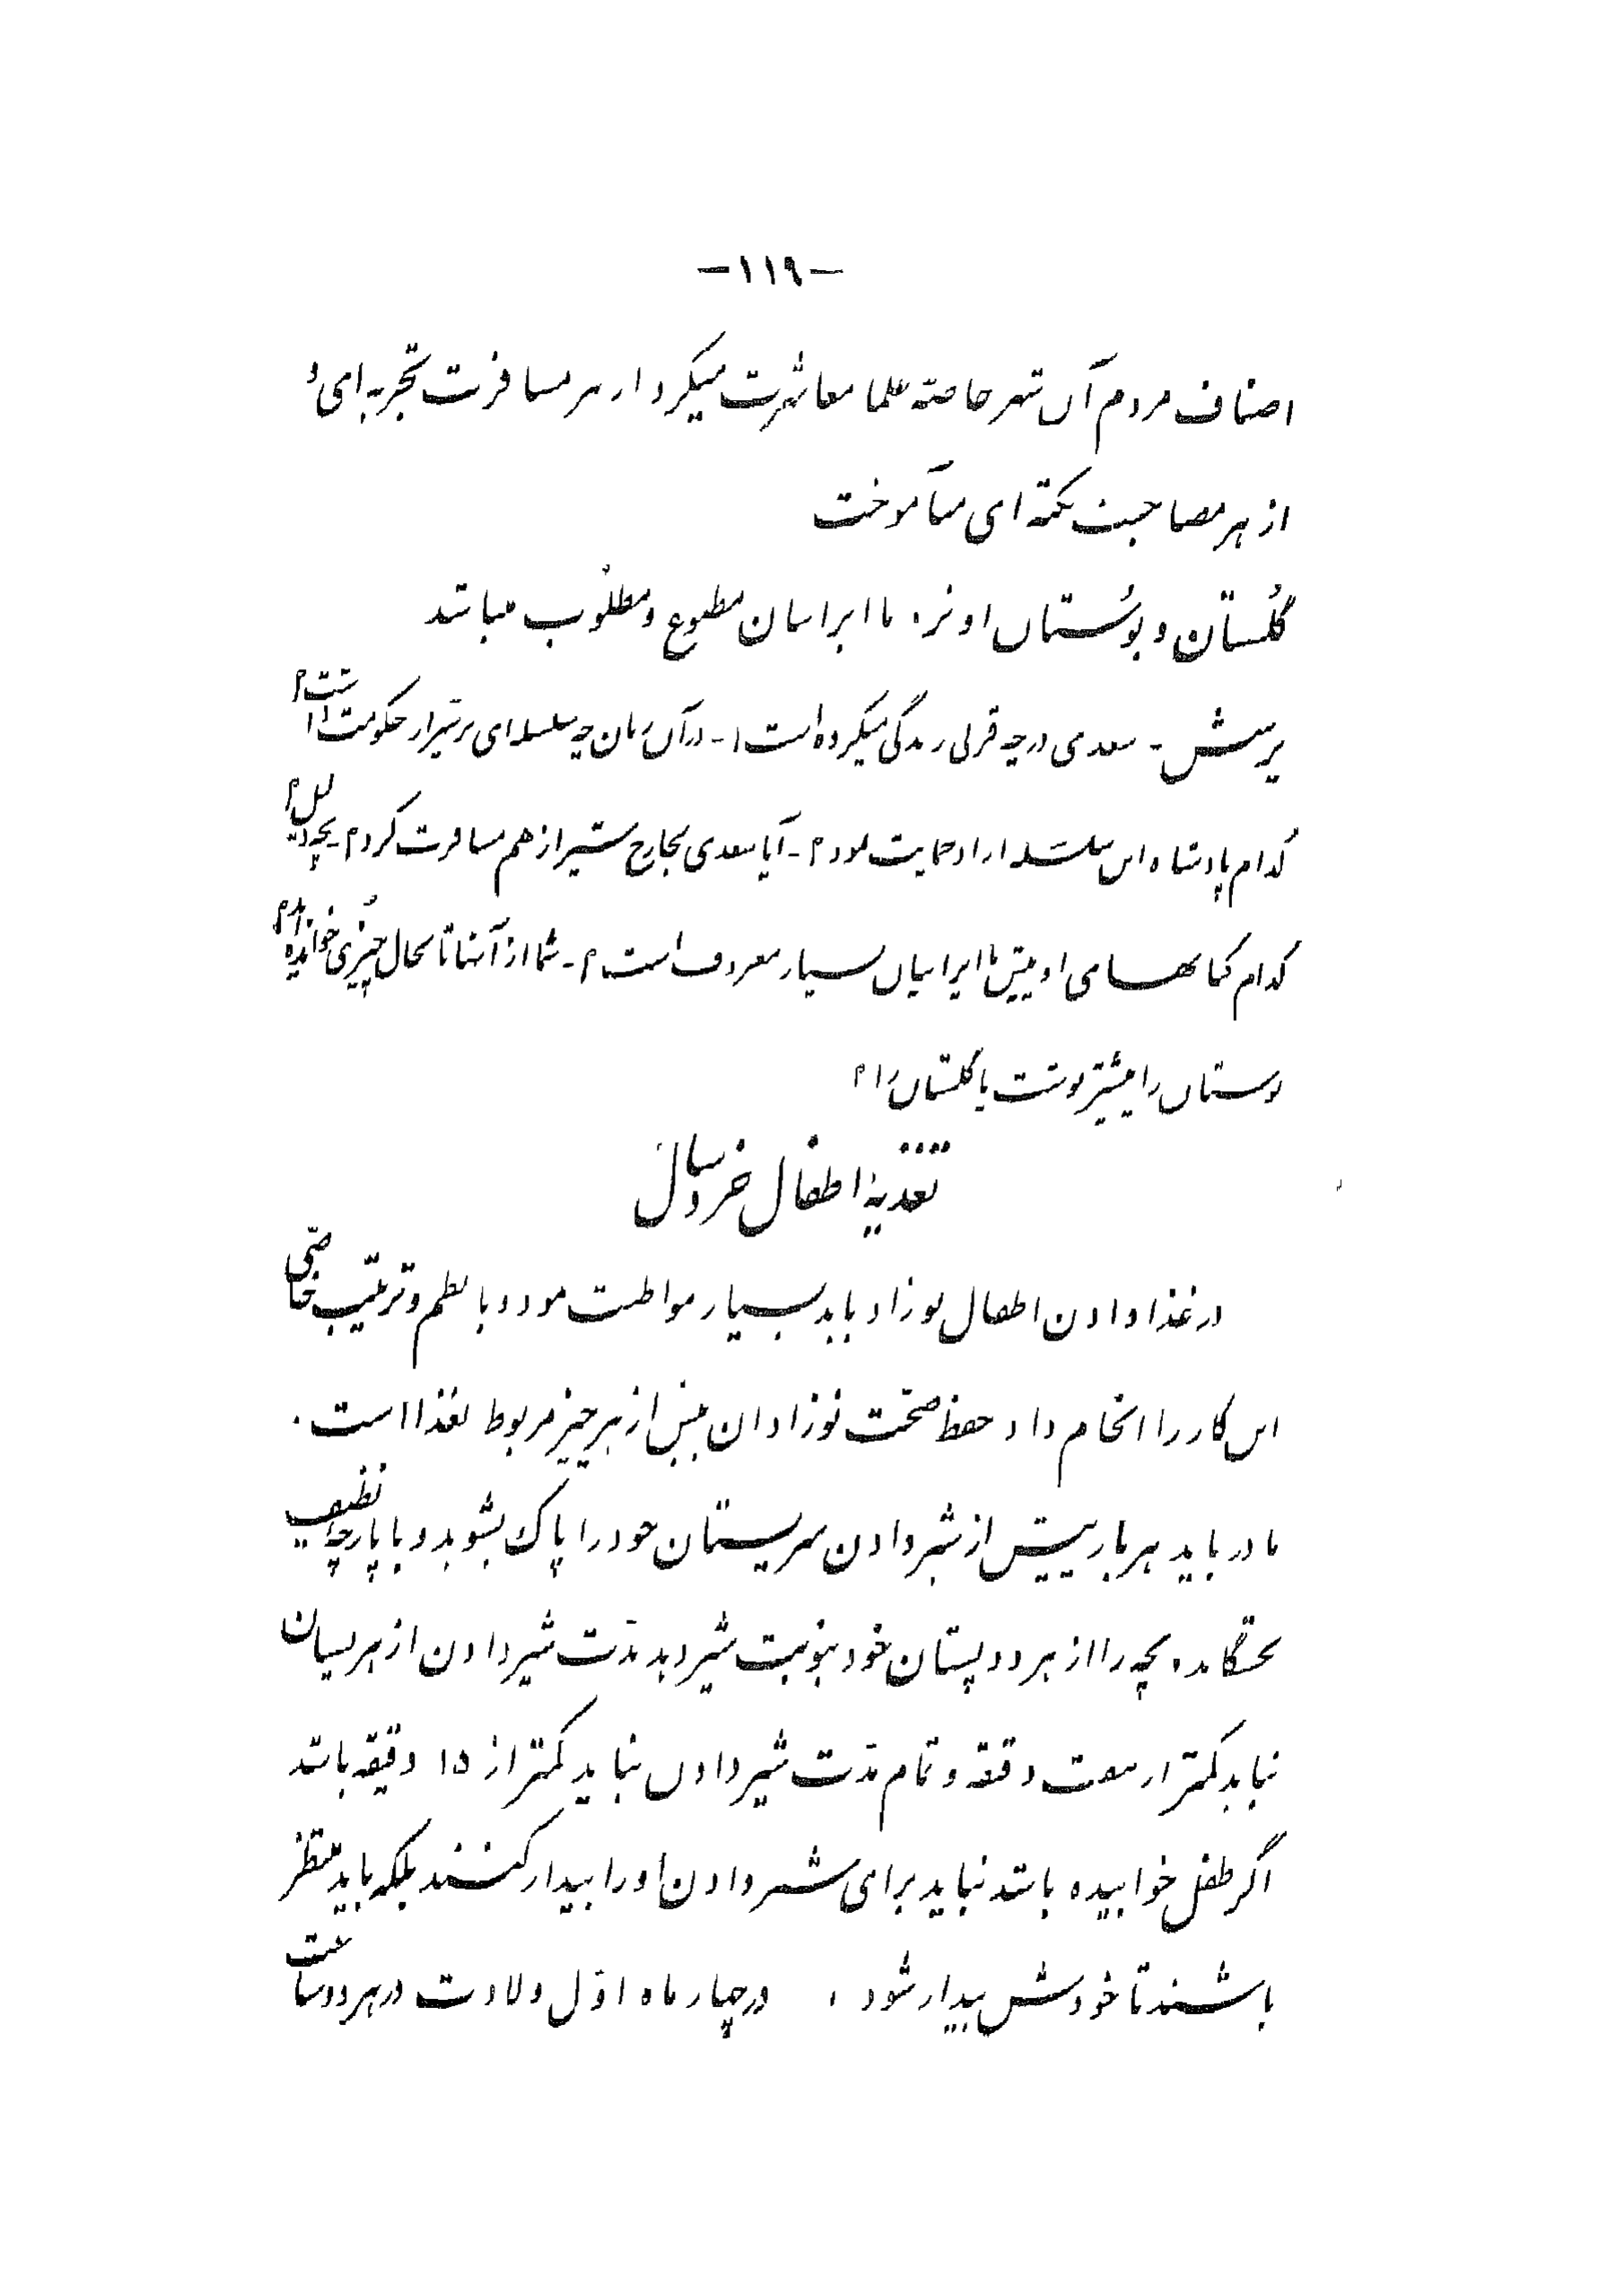 -١١٩-
اصناف مردم آن شهر خاصّه علما معاشرت میکرد از هر مسافرت تجربه‌ای و
از هر مصاحبت نکته‌ای میآموخت
گلستان و بوستان او نزد ما ایرانیان مطبوع و مطلوب میباشد
پرسش - سعدی در چه قرنی زندگی میکرده است؟ - در آن زمان چه سلسله‌ای بر شیراز حکومت داشت؟
کدام پادشاه این سلسله از او حمایت نمود؟ - آیا سعدی بخارج شیراز هم مسافرت کرد؟ - بچه دلیل؟
کدام کتابهای او پیش ما ایرانیان بسیار معروف است؟ - شما از آنها تا بحال چیزی خوانده‌اید؟
بوستان را پیشتر نوشت یا گلستان را؟
تغذیهٔ اطفال خردسال
در غذا دادن اطفال نوزاد باید بسیار مواظبت نمود و با نظم و ترتیب خاصّی
این کار را انجام داد حفظ صحّت نوزادان بیش از هر چیز مربوط بغذا است.
مادر باید هر بار پیش از شیر دادن سر پستان خود را پاک بشوید و با پارچهٔ نظیف
بخشکاند، بچه را از هر دو پستان خود بنوبت شیر دهد مدّت شیر دادن از هر پستان
نباید کمتر از هفت دقیقه و تمام مدّت شیر دادن نباید کمتر از ۱۵ دقیقه باشد
اگر طفل خوابیده باشد نباید برای شیر دادن او را بیدار کنند بلکه باید منتظر
باشند تا خودش بیدار شود، در چهار ماه اوّل ولادت در هر دو ساعت